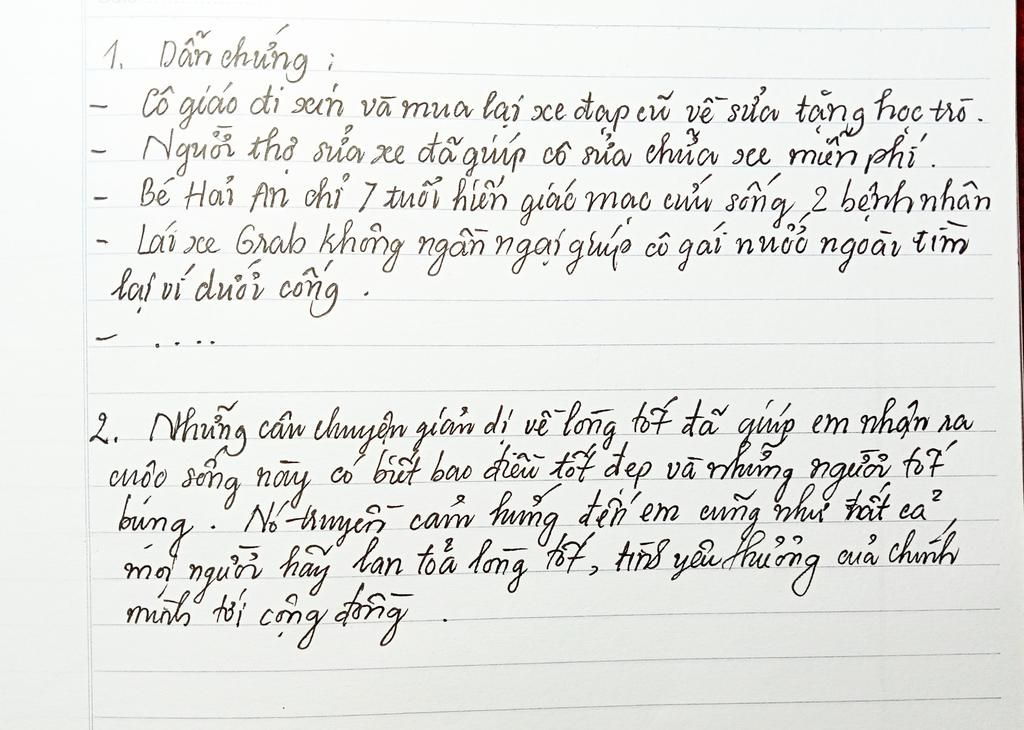 1. Dẫn chứng :
- Cô giáo đi xin và mua lại xe đạp cũ về sửa tặng học trò.
- Người thợ sửa xe đã giúp cô sửa chữa xe miễn phí.
- Bé Hải An chỉ 7 tuổi hiến giác mạc cứu sống 2 bệnh nhân
- Lái xe Grab không ngần ngại giúp cô gái nước ngoài tìm
lại ví dưới cống .
- ....
2. Những câu chuyện giản dị về lòng tốt đã giúp em nhận ra
cuộc sống này có biết bao điều tốt đẹp và những người tốt
bụng . Nó truyền cảm hứng đến em cũng như tất cả
mọi người hãy lan tỏa lòng tốt, tình yêu thương của chính
mình tới cộng đồng .